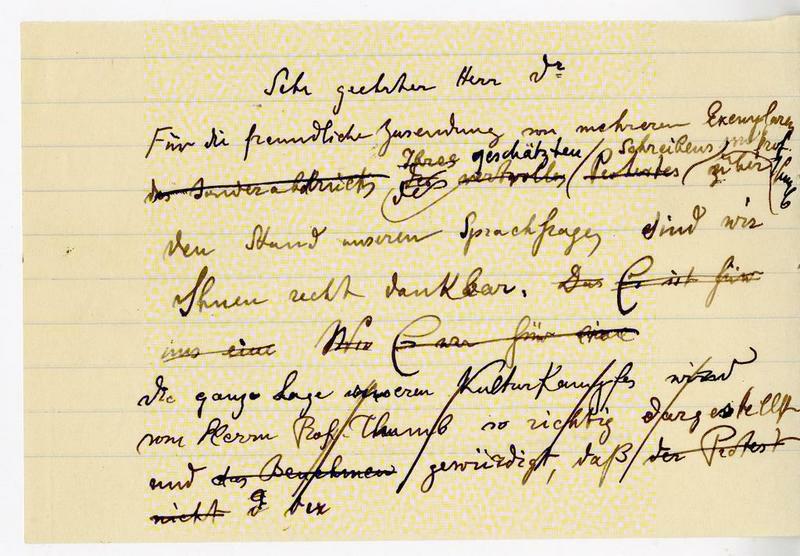 Sehr geehrter Herr Dr
Für die freundliche Zusendung von mehreren Exemplaren
Ihres geschätzten Schreibens Prof.
des Sonderabdrucks des wertvollen Protestes über Thumb
den Stand unserer Sprachfrage, sind wir
Ihnen recht dankbar. Das Es ist für
uns eine Wir Es war für eine
die ganze Lage unseren Kulturkampfes wird
vom Herrn Prof. Thumb so richtig dargestellt
und das Benehmen gewürdigt, daß der Protest
nicht